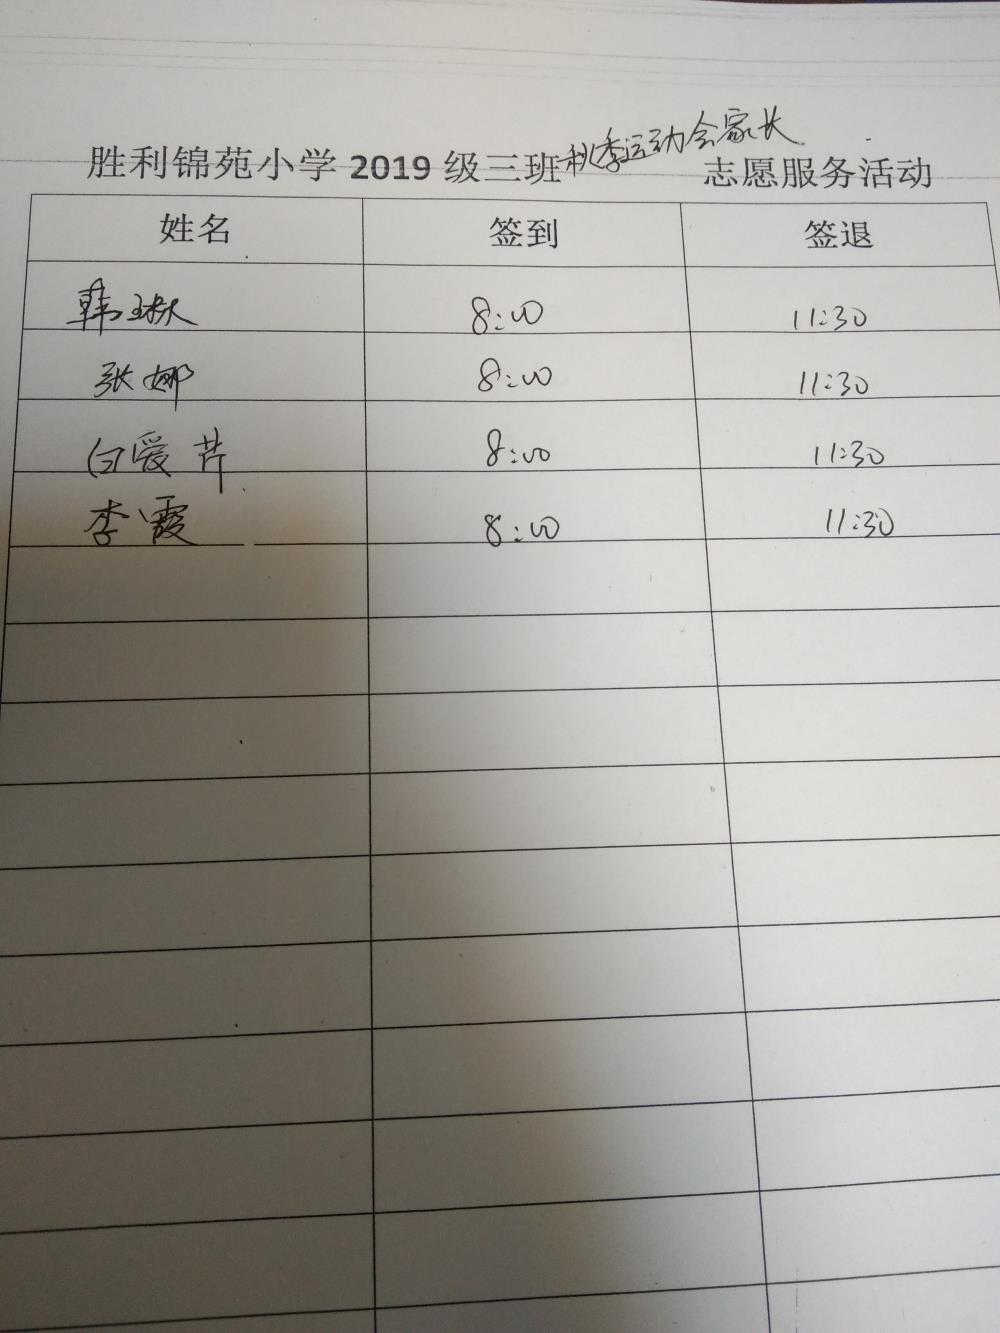 胜利锦苑小学 2019 级三班秋季运动会家长志愿服务活动
姓名 签到 签退
韩 8:00 11:30
张娜 8:00 11:30
白爱芹 8:00 11:30
李霞 8:00 11:30